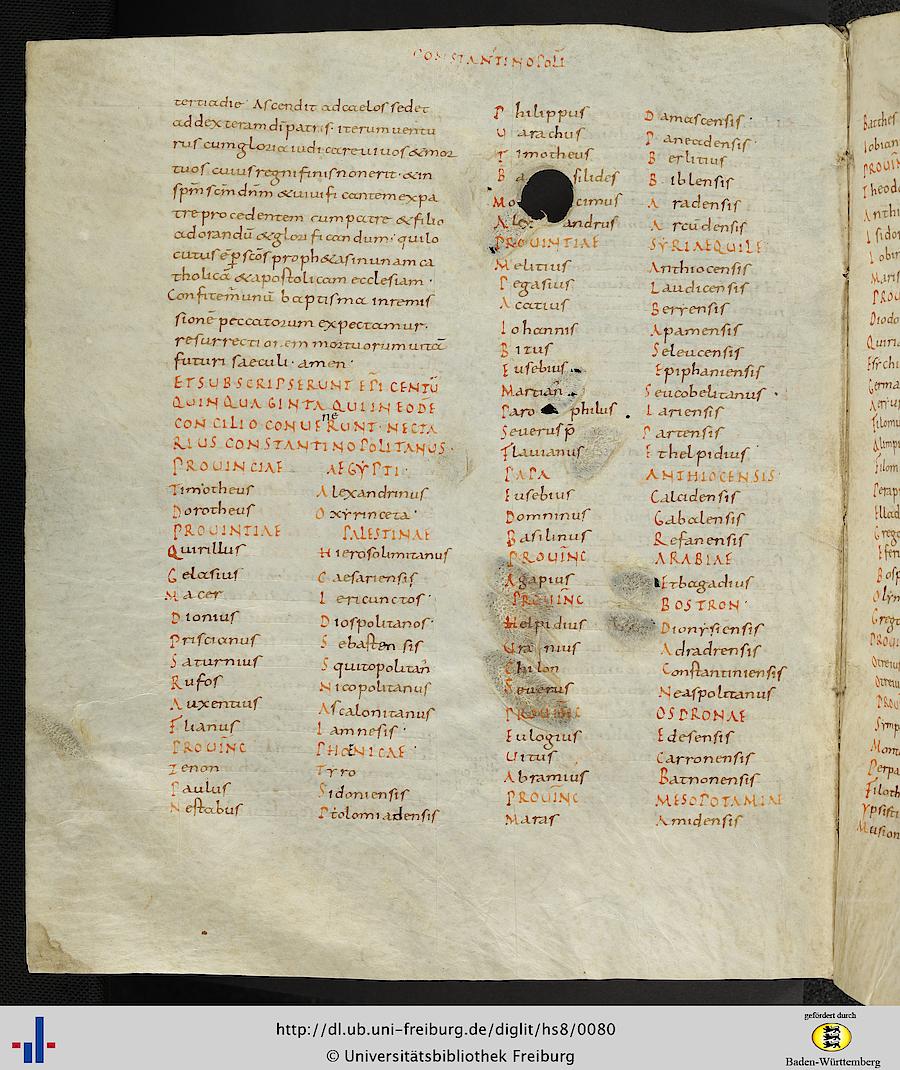 CONSTANTINOPOLI
tertia die Ascendit ad caelos sedet
ad dexteram di patris· iterum uentu
rus cum gloria iudicare uiuos & mor
tuos cuius regni finis non erit· & in
spm scm dnm & uiuificantem ex pa
tre procedentem cum patre & filio
adorandu & glorificandum· qui lo
cutus e p scos proph&as in unam ca
tholica & apostolicam ecclesiam·
Confitemur unu baptisma in remis
sione peccatorum expectamus·
resurrectionem mortuorum uita
futuri saeculi· amen·
ET SUBSCRIPSERUNT EPI CENTU
QUINQUAGINTA QUI IN EODE
CONCILIO CONUENERUNT· NECTA
RIUS CONSTANTINOPOLITANUS·
PROUINCIAE AEGYPTI·
Timotheus Alexandrinus
Dorotheus Oxyrinceta·
PROUINTIAE PALESTINAE
Quirillus Hierosolimitanus
Gelasius Caesariensis
Macer Iericunctos·
Dionius Diospolitanos·
Priscianus Sebastensis
Saturnius Squitopolitan
Rufos Nicopolitanus
Auxentius Ascalonitanus
Elianus Iamnesis·
PROUINC PHOENICAE·
Zenon Tyro
Paulus Sidoniensis
Nestabus Ptolomiadensis
Philippus Damascensis·
Uarachus Paneadensis·
Timotheus Berlitius
Ba silides Biblensis
Mo cimus Aradensis
Alexandrus Arcudensis
PROUINTIAE SYRIAE QUILE
Melitius Anthiocensis
Pegasius Laudicensis
Acatius Berrensis
Iohannis Apamensis
Bitus Seleucensis
Eusebius Epiphaniensis
Martian Seucobelitanus·
Paro philus Lariensis
Seuerus p Partensis
Flauianus Ethelpidius
PAPA ANTHIOCENSIS·
Eusebius Calcidensis
Domninus Gabalensis
Basilinus Refanensis
PROUINC ARABIAE
Agapius Etbagadius
PROUINC BOSTRON·
Helpidius Dionysiensis
Uranius Adradrensis
Chilon Constantiniensis
Seuerus Neaspolitanus
PROUINC OSDRONAE
Eulogius Edesensis
Uitus Carronensis
Abramius Batnonensis
PROUINC MESOPOTAMIAE
Maras Amidensis
http://dl.ub.uni-freiburg.de/diglit/hs8/0080
© Universitätsbibliothek Freiburg
gefördert durch
Baden-Württemberg